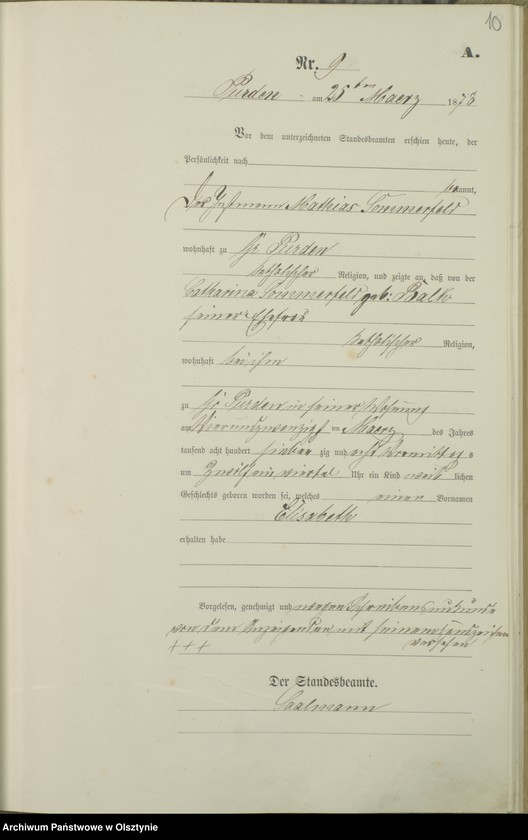 10
A.
Nr. 9
Purden am 25ten Maerz 1878
Vor dem unterzeichneten Standesbeamten erschien heute, der
Persönlichkeit nach
kannt,
Der Instmann Mathias Sommerfeld
wohnhaft zu Gr Purden
katholischer Religion, und zeigte an, daß von der
Catharina Sommerfeld geb: Palk
seiner Ehefrau
katholischer Religion,
wohnhaft bei ihm
zu Gr Purden in seiner Wohnung
am Vierundzwanzigst en Maerz des Jahres
tausend acht hundert sieben zig und acht Vormittags
um Zwölf ein viertel Uhr ein Kind weib lichen
Geschlechts geboren worden sei, welches einen Vornamen
Elisabeth
erhalten habe
Vorgelesen, genehmigt und wegen Schreibensunkunde
von dem Anzeigenden mit seinem Handzeichen
+++ versehen
Der Standesbeamte.
Saalmann
Archiwum Państwowe w Olsztynie